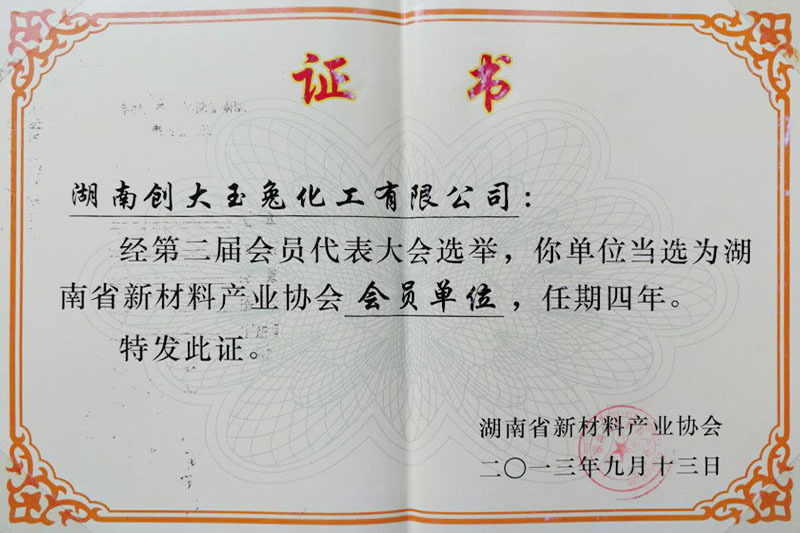 证书
湖南创大玉兔化工有限公司：
经第二届会员代表大会选举，你单位当选为湖
南省新材料产业协会会员单位，任期四年。
特发此证。
湖南省新材料产业协会
二〇一三年九月十三日